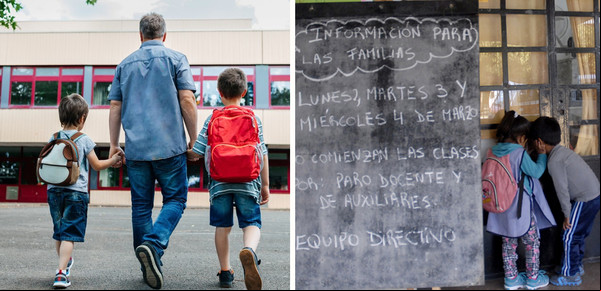 INFORMACIÓN PARA
LAS FAMILIAS
LUNES 2, MARTES 3 Y
MIERCOLES 4 DE MARZO
NO COMIENZAN LAS CLASES
POR: PARO DOCENTE Y
DE AUXILIARES.
EQUIPO DIRECTIVO